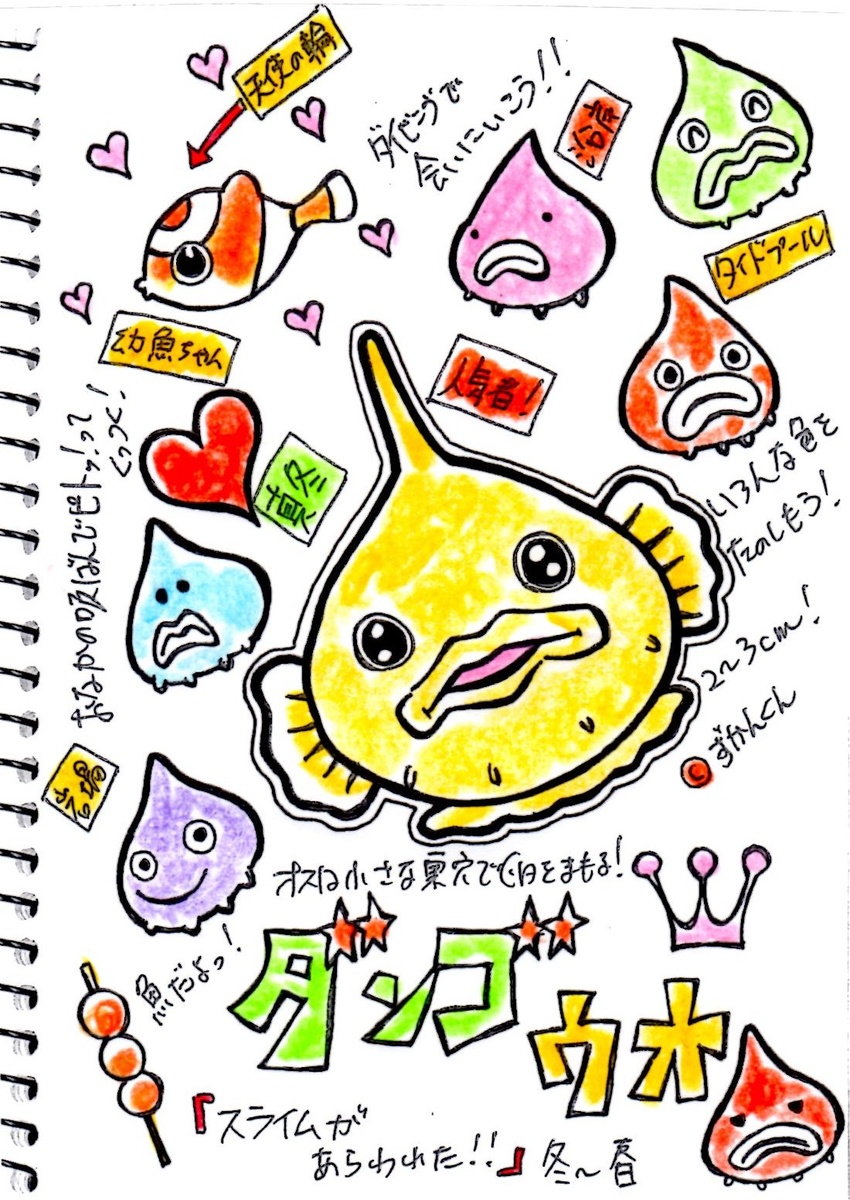 天使の輪
ダイビングで
会いにいこう!!
沿岸
タイドプール
幼魚ちゃん
人気者!
おなかの吸ばんでピトッ!って
くっつく!
真冬
いろんな色を
たのしもう!
2〜3cm!
ずかんくん
岩場
オスは小さな巣穴で卵をまもる!
魚だよっ!
ダンゴ
ウオ
『スライムが
あらわれた!!』
冬〜春